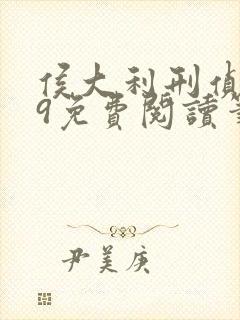 侯大利刑偵
9免費閱讀
尹美庚